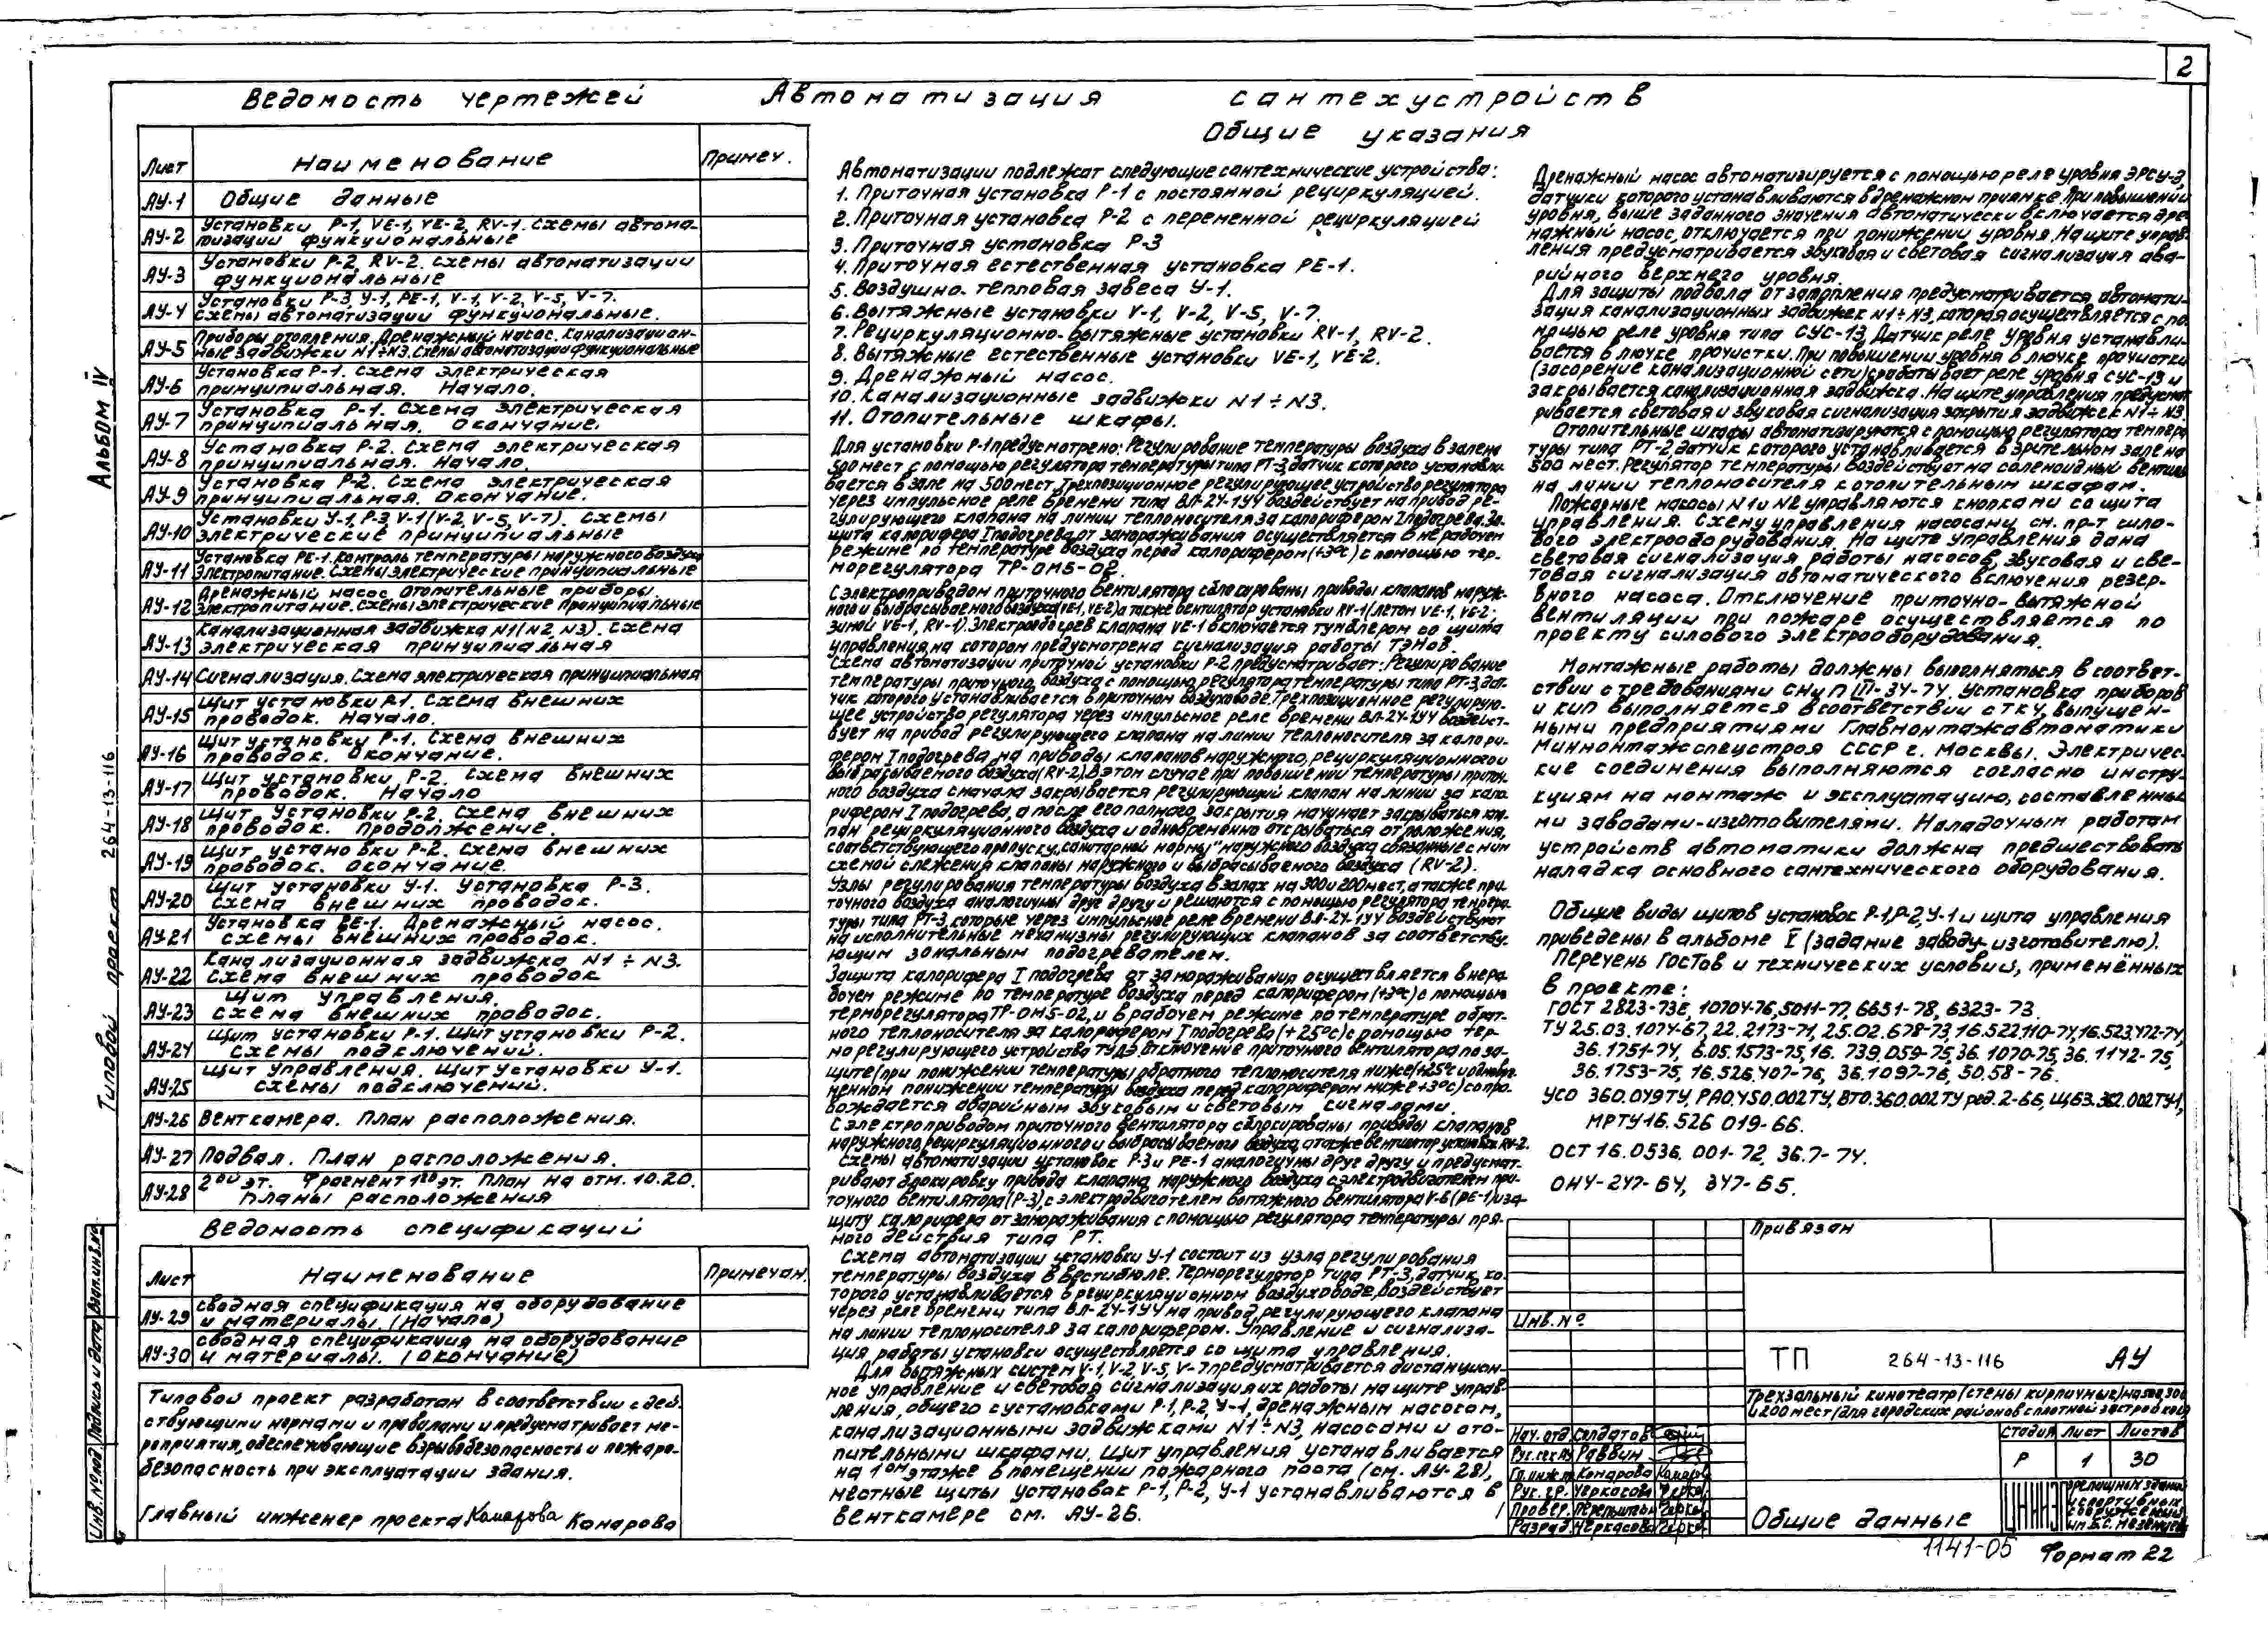 2
Ведомость чертежей
Автоматизация сантехустройств
Общие указания
Лист Наименование Примеч.
АУ-1 Общие данные
АУ-2 Установки P-1, VE-1, VE-2, RV-1. Схемы автома-
тизации функциональные
АУ-3 Установки P-2, RV-2. Схемы автоматизации
функциональные
АУ-4 Установки P-3, У-1, PE-1, V-1, V-2, V-5, V-7.
Схемы автоматизации функциональные.
АУ-5 Приборы отопления. Дренажный насос. Канализацион-
ные задвижки N1÷N3. Схемы автоматизации функциональные
АУ-6 Установка P-1. Схема электрическая
принципиальная. Начало.
АУ-7 Установка P-1. Схема электрическая
принципиальная. Окончание.
АУ-8 Установка P-2. Схема электрическая
принципиальная. Начало.
АУ-9 Установка P-2. Схема электрическая
принципиальная. Окончание.
АУ-10 Установки У-1, P-3, V-1 (V-2, V-5, V-7). Схемы
электрические принципиальные
АУ-11 Установка PE-1. Контроль температуры наружного воздуха
Электропитание. Схемы электрические принципиальные
АУ-12 Дренажный насос. Отопительные приборы.
Электропитание. Схемы электрические принципиальные
АУ-13 Канализационная задвижка N1 (N2, N3). Схема
электрическая принципиальная
АУ-14 Сигнализация. Схема электрическая принципиальная
АУ-15 Щит установки P-1. Схема внешних
проводок. Начало.
АУ-16 Щит установки P-1. Схема внешних
проводок. Окончание.
АУ-17 Щит установки P-2. Схема внешних
проводок. Начало
АУ-18 Щит установки P-2. Схема внешних
проводок. Продолжение.
АУ-19 Щит установки P-2. Схема внешних
проводок. Окончание.
АУ-20 Щит установки У-1. Установка P-3.
Схема внешних проводок.
АУ-21 Установка PE-1. Дренажный насос.
Схемы внешних проводок.
АУ-22 Канализационная задвижка N1÷N3.
Схема внешних проводок
АУ-23 Щит управления.
Схема внешних проводок.
АУ-24 Щит установки P-1. Щит установки P-2.
Схемы подключений.
АУ-25 Щит управления. Щит установки У-1.
Схемы подключений.
АУ-26 Венткамера. План расположения.
АУ-27 Подвал. План расположения.
АУ-28 2ой эт. Фрагмент 1го эт. План на отм. 10.20.
Планы расположения
Ведомость спецификаций
Лист Наименование Примечан.
АУ-29 Сводная спецификация на оборудование
и материалы. (Начало)
АУ-30 Сводная спецификация на оборудование
и материалы. (Окончание)
Типовой проект разработан в соответствии с дей-
ствующими нормами и правилами и предусматривает ме-
роприятия, обеспечивающие взрывобезопасность и пожаро-
безопасность при эксплуатации здания.
Главный инженер проекта Комарова Комарова
Альбом IV
Типовой проект 264-13-116
Инв. № под. Подпись и дата Взам. инв. №
Автоматизации подлежат следующие сантехнические устройства:
1. Приточная установка P-1 с постоянной рециркуляцией.
2. Приточная установка P-2 с переменной рециркуляцией
3. Приточная установка P-3
4. Приточная естественная установка PE-1.
5. Воздушно-тепловая завеса У-1.
6. Вытяжные установки V-1, V-2, V-5, V-7.
7. Рециркуляционно-вытяжные установки RV-1, RV-2.
8. Вытяжные естественные установки VE-1, VE-2.
9. Дренажный насос.
10. Канализационные задвижки N1÷N3.
11. Отопительные шкафы.
Для установки P-1 предусмотрено: Регулирование температуры воздуха в зале на
500 мест с помощью регулятора температуры типа РТ-3, датчик которого устанавли-
вается в зале на 500 мест. Трехпозиционное регулирующее устройство регулятора
через импульсное реле времени типа ВЛ-24-1У4 воздействует на привод ре-
гулирующего клапана на линии теплоносителя за калорифером I подогрева. За-
щита калорифера I подогрева от замораживания осуществляется в нерабочем
режиме по температуре воздуха перед калорифером (+3°С) с помощью тер-
морегулятора ТР-ОМ5-02.
С электроприводом приточного вентилятора сблокированы приводы клапанов наруж-
ного и выбрасываемого воздуха (VE-1, VE-2) а также вентилятор установки RV-1 (летом VE-1, VE-2;
зимой VE-1, RV-1). Электроподогрев клапана VE-1 включается тумблером со щита
управления, на котором предусмотрена сигнализация работы ТЭНов.
Схема автоматизации приточной установки P-2 предусматривает: Регулирование
температуры приточного воздуха с помощью регулятора температуры типа РТ-3, дат-
чик которого устанавливается в приточном воздуховоде. Трехпозиционное регулирую-
щее устройство регулятора через импульсное реле времени ВЛ-24-1У4 воздейст-
вует на привод регулирующего клапана на линии теплоносителя за калори-
фером I подогрева, на приводы клапанов наружного, рециркуляционного и
выбрасываемого воздуха (RV-2). В этом случае при повышении температуры приточ-
ного воздуха сначала закрывается регулирующий клапан на линии за кало-
рифером I подогрева, а после его полного закрытия начинает закрываться кла-
пан рециркуляционного воздуха и одновременно открываться от положения,
соответствующего пропуску „санитарной нормы" наружного воздуха связанные с ним
схемой слежения клапаны наружного и выбрасываемого воздуха (RV-2).
Узлы регулирования температуры воздуха в залах на 300 и 200 мест, а также при-
точного воздуха аналогичны друг другу и решаются с помощью регулятора темпера-
туры типа РТ-3, которые через импульсное реле времени ВЛ-24-1У4 воздействуют
на исполнительные механизмы регулирующих клапанов за соответству-
ющим зональным подогревателем.
Защита калорифера I подогрева от замораживания осуществляется в нера-
бочем режиме по температуре воздуха перед калорифером (+3°С) с помощью
терморегулятора ТР-ОМ5-02, и в рабочем режиме по температуре обрат-
ного теплоносителя за калорифером I подогрева (+25°С) с помощью тер-
морегулирующего устройства ТУДЭ. Отключение приточного вентилятора по за-
щите (при понижении температуры обратного теплоносителя ниже (+25°С и одновре-
менном понижении температуры воздуха перед калорифером ниже +3°С) сопро-
вождается аварийным звуковым и световым сигналами.
С электроприводом приточного вентилятора сблокированы приводы клапанов
наружного, рециркуляционного и выбрасываемого воздуха, а также вентилятор установки RV-2.
Схемы автоматизации установок P-3 и PE-1 аналогичны друг другу и предусмат-
ривают блокировку привода клапана наружного воздуха с электродвигателем при-
точного вентилятора (P-3), с электродвигателем вытяжного вентилятора V-6 (PE-1) и за-
щиту калорифера от замораживания с помощью регулятора температуры пря-
мого действия типа РТ.
Схема автоматизации установки У-1 состоит из узла регулирования
температуры воздуха в вестибюле. Терморегулятор типа РТ-3, датчик ко-
торого устанавливается в рециркуляционном воздуховоде, воздействует
через реле времени типа ВЛ-24-1У4 на привод регулирующего клапана
на линии теплоносителя за калорифером. Управление и сигнализа-
ция работы установки осуществляется со щита управления.
Для вытяжных систем V-1, V-2, V-5, V-7 предусматривается дистанцион-
ное управление и световая сигнализация их работы на щите управ-
ления, общего с установками P-1, P-2, У-1, дренажным насосом,
канализационными задвижками N1÷N3, насосами и ото-
пительными шкафами. Щит управления устанавливается
на 1ом этаже в помещении пожарного поста (см. АУ-28),
местные щиты установок P-1, P-2, У-1 устанавливаются в
венткамере см. АУ-26.
Дренажный насос автоматизируется с помощью реле уровня ЭРСУ-3,
датчики которого устанавливаются в дренажном приямке. При повышении
уровня, выше заданного значения автоматически включается дре-
нажный насос, отключается при понижении уровня. На щите управ-
ления предусматривается звуковая и световая сигнализация ава-
рийного верхнего уровня.
Для защиты подвала от затопления предусматривается автомати-
зация канализационных задвижек N1÷N3, которая осуществляется с по-
мощью реле уровня типа СУС-13. Датчик реле уровня устанавли-
вается в лючке прочистки. При повышении уровня в лючке прочистки
(засорение канализационной сети) срабатывает реле уровня СУС-13 и
закрывается канализационная задвижка. На щите управления предусмат-
ривается световая и звуковая сигнализация закрытия задвижек N1÷N3.
Отопительные шкафы автоматизируются с помощью регулятора темпера-
туры типа РТ-2, датчик которого устанавливается в зрительном зале на
500 мест. Регулятор температуры воздействует на соленоидный вентиль
на линии теплоносителя к отопительным шкафам.
Пожарные насосы N1 и N2 управляются кнопками со щита
управления. Схему управления насосами см. пр-т сило-
вого электрооборудования. На щите управления дана
световая сигнализация работы насосов, звуковая и све-
товая сигнализация автоматического включения резер-
вного насоса. Отключение приточно-вытяжной
вентиляции при пожаре осуществляется по
проекту силового электрооборудования.
Монтажные работы должны выполняться в соответ-
ствии с требованиями СНиП III-34-74. Установка приборов
и КИП выполняется в соответствии с ТКУ, выпущен-
ными предприятиями Главмонтажавтоматики
Минмонтажспецстроя СССР г. Москвы. Электричес-
кие соединения выполняются согласно инстру-
кциям на монтаж и эксплуатацию, составленны-
ми заводами-изготовителями. Наладочным работам
устройств автоматики должна предшествовать
наладка основного сантехнического оборудования.
Общие виды щитов установок P-1, P-2, У-1 и щита управления
приведены в альбоме V (задание заводу-изготовителю).
Перечень ГОСТов и технических условий, применённых
в проекте:
ГОСТ 2823-73Е, 10704-76, 5011-77, 6651-78, 6323-73.
ТУ 25.03.1074-67, 22.2173-71, 25.02.678-73, 16.522.110-74, 16.523.472-74,
36.1751-74, 6.05.1573-75, 16.739.059-75, 36.1070-75, 36.1142-75,
36.1753-75, 16.526.407-76, 36.1097-76, 50.58-76.
УСО 360.049ТУ, РАО.450.002ТУ, ВТО.360.002ТУ ред. 2-66,
МРТУ16.526 019-66.
ОСТ 16.0536.001-72, 36.7-74.
ОНУ-247-64, 347-65.
Привязан
Инв. №
ТП 264-13-116 АУ
Трехзальный кинотеатр (стены кирпичные) на 500, 300
и 200 мест (для городских районов с плотной застройкой)
Нач. отд. Солдатов
Рук. сек. АУ Раввин
Гл. инж. пр. Комарова Комаров
Рук. гр. Черкасова Черкас
Провер. Перельштейн
Разраб. Черкасова Черкас
Стадия Лист Листов
Р 1 30
Общие данные
ЦНИИЭП зрелищных зданий
и спортивных
сооружений
им. Б.С. Мезенцева
1141-05 Формат 22